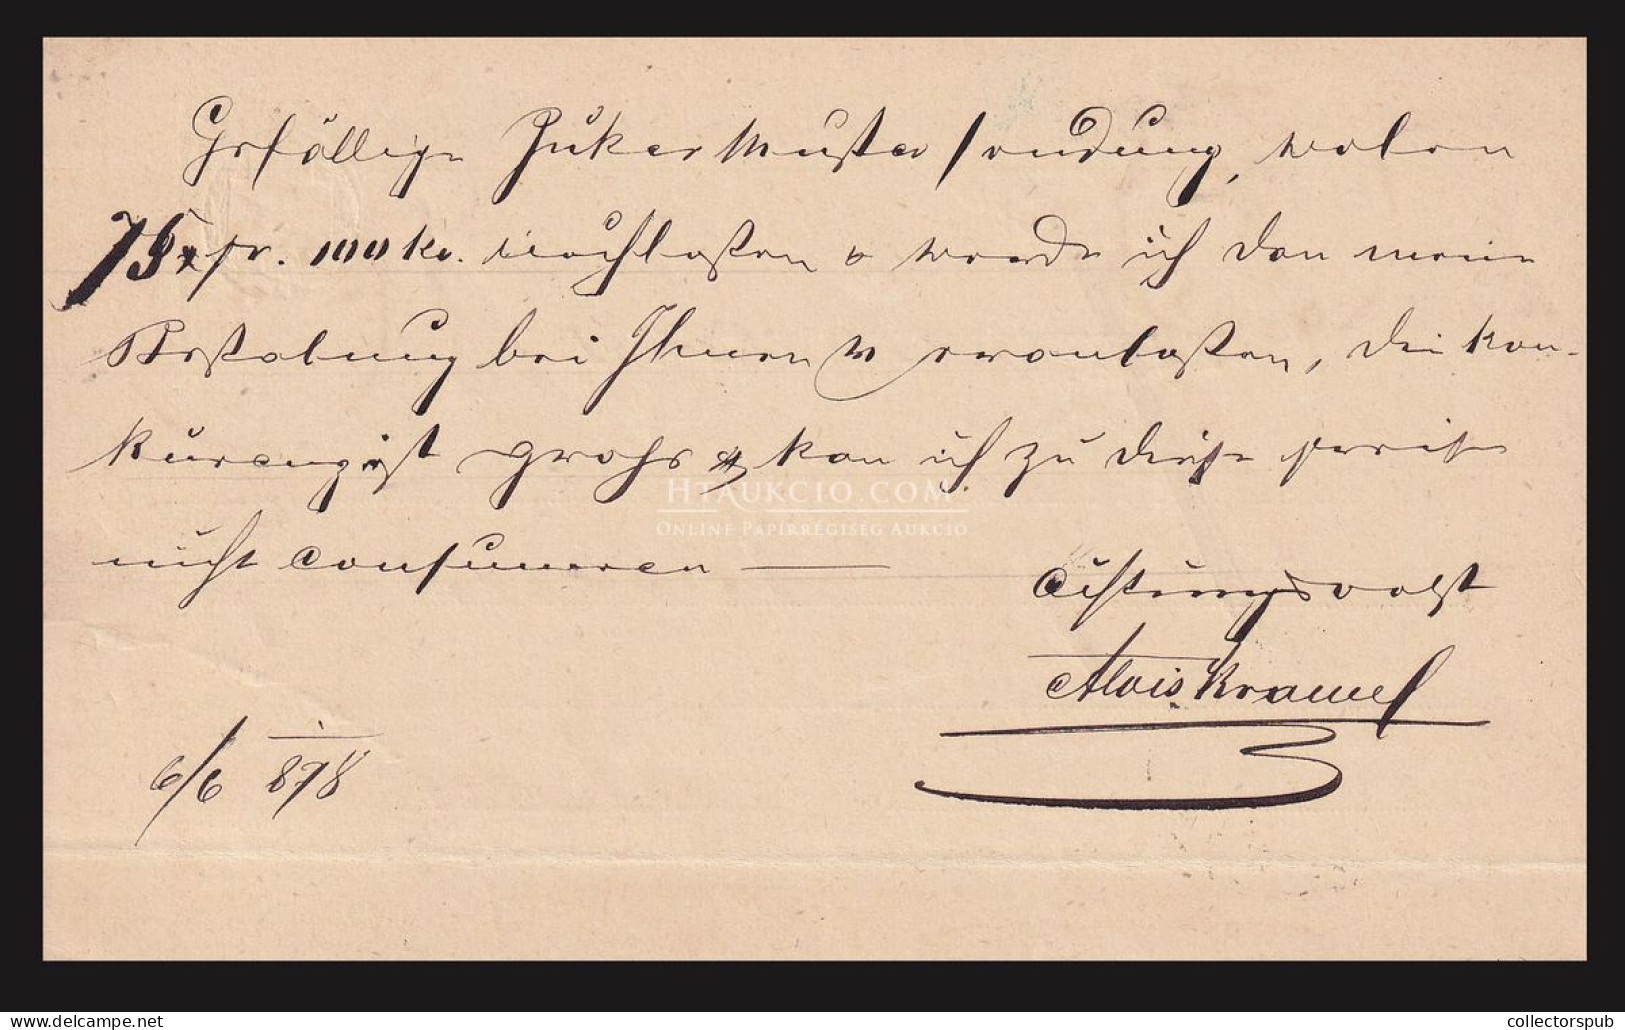 Gefällige Zuker Muster sendung, wolen
75x pr. 100 Ko. nachlassen & werde ich dan meine
Bestelung bei Ihnen veranlassen, die kon-
kurenz ist gross & kan ich zu diese preise
nicht consumeren —
Achtungsvolst
Alois Kramel
6/6 878
HTAUKCIO.COM
ONLINE PAPÍRRÉGISÉG AUKCIÓ
www.delcampe.net
collectorspub